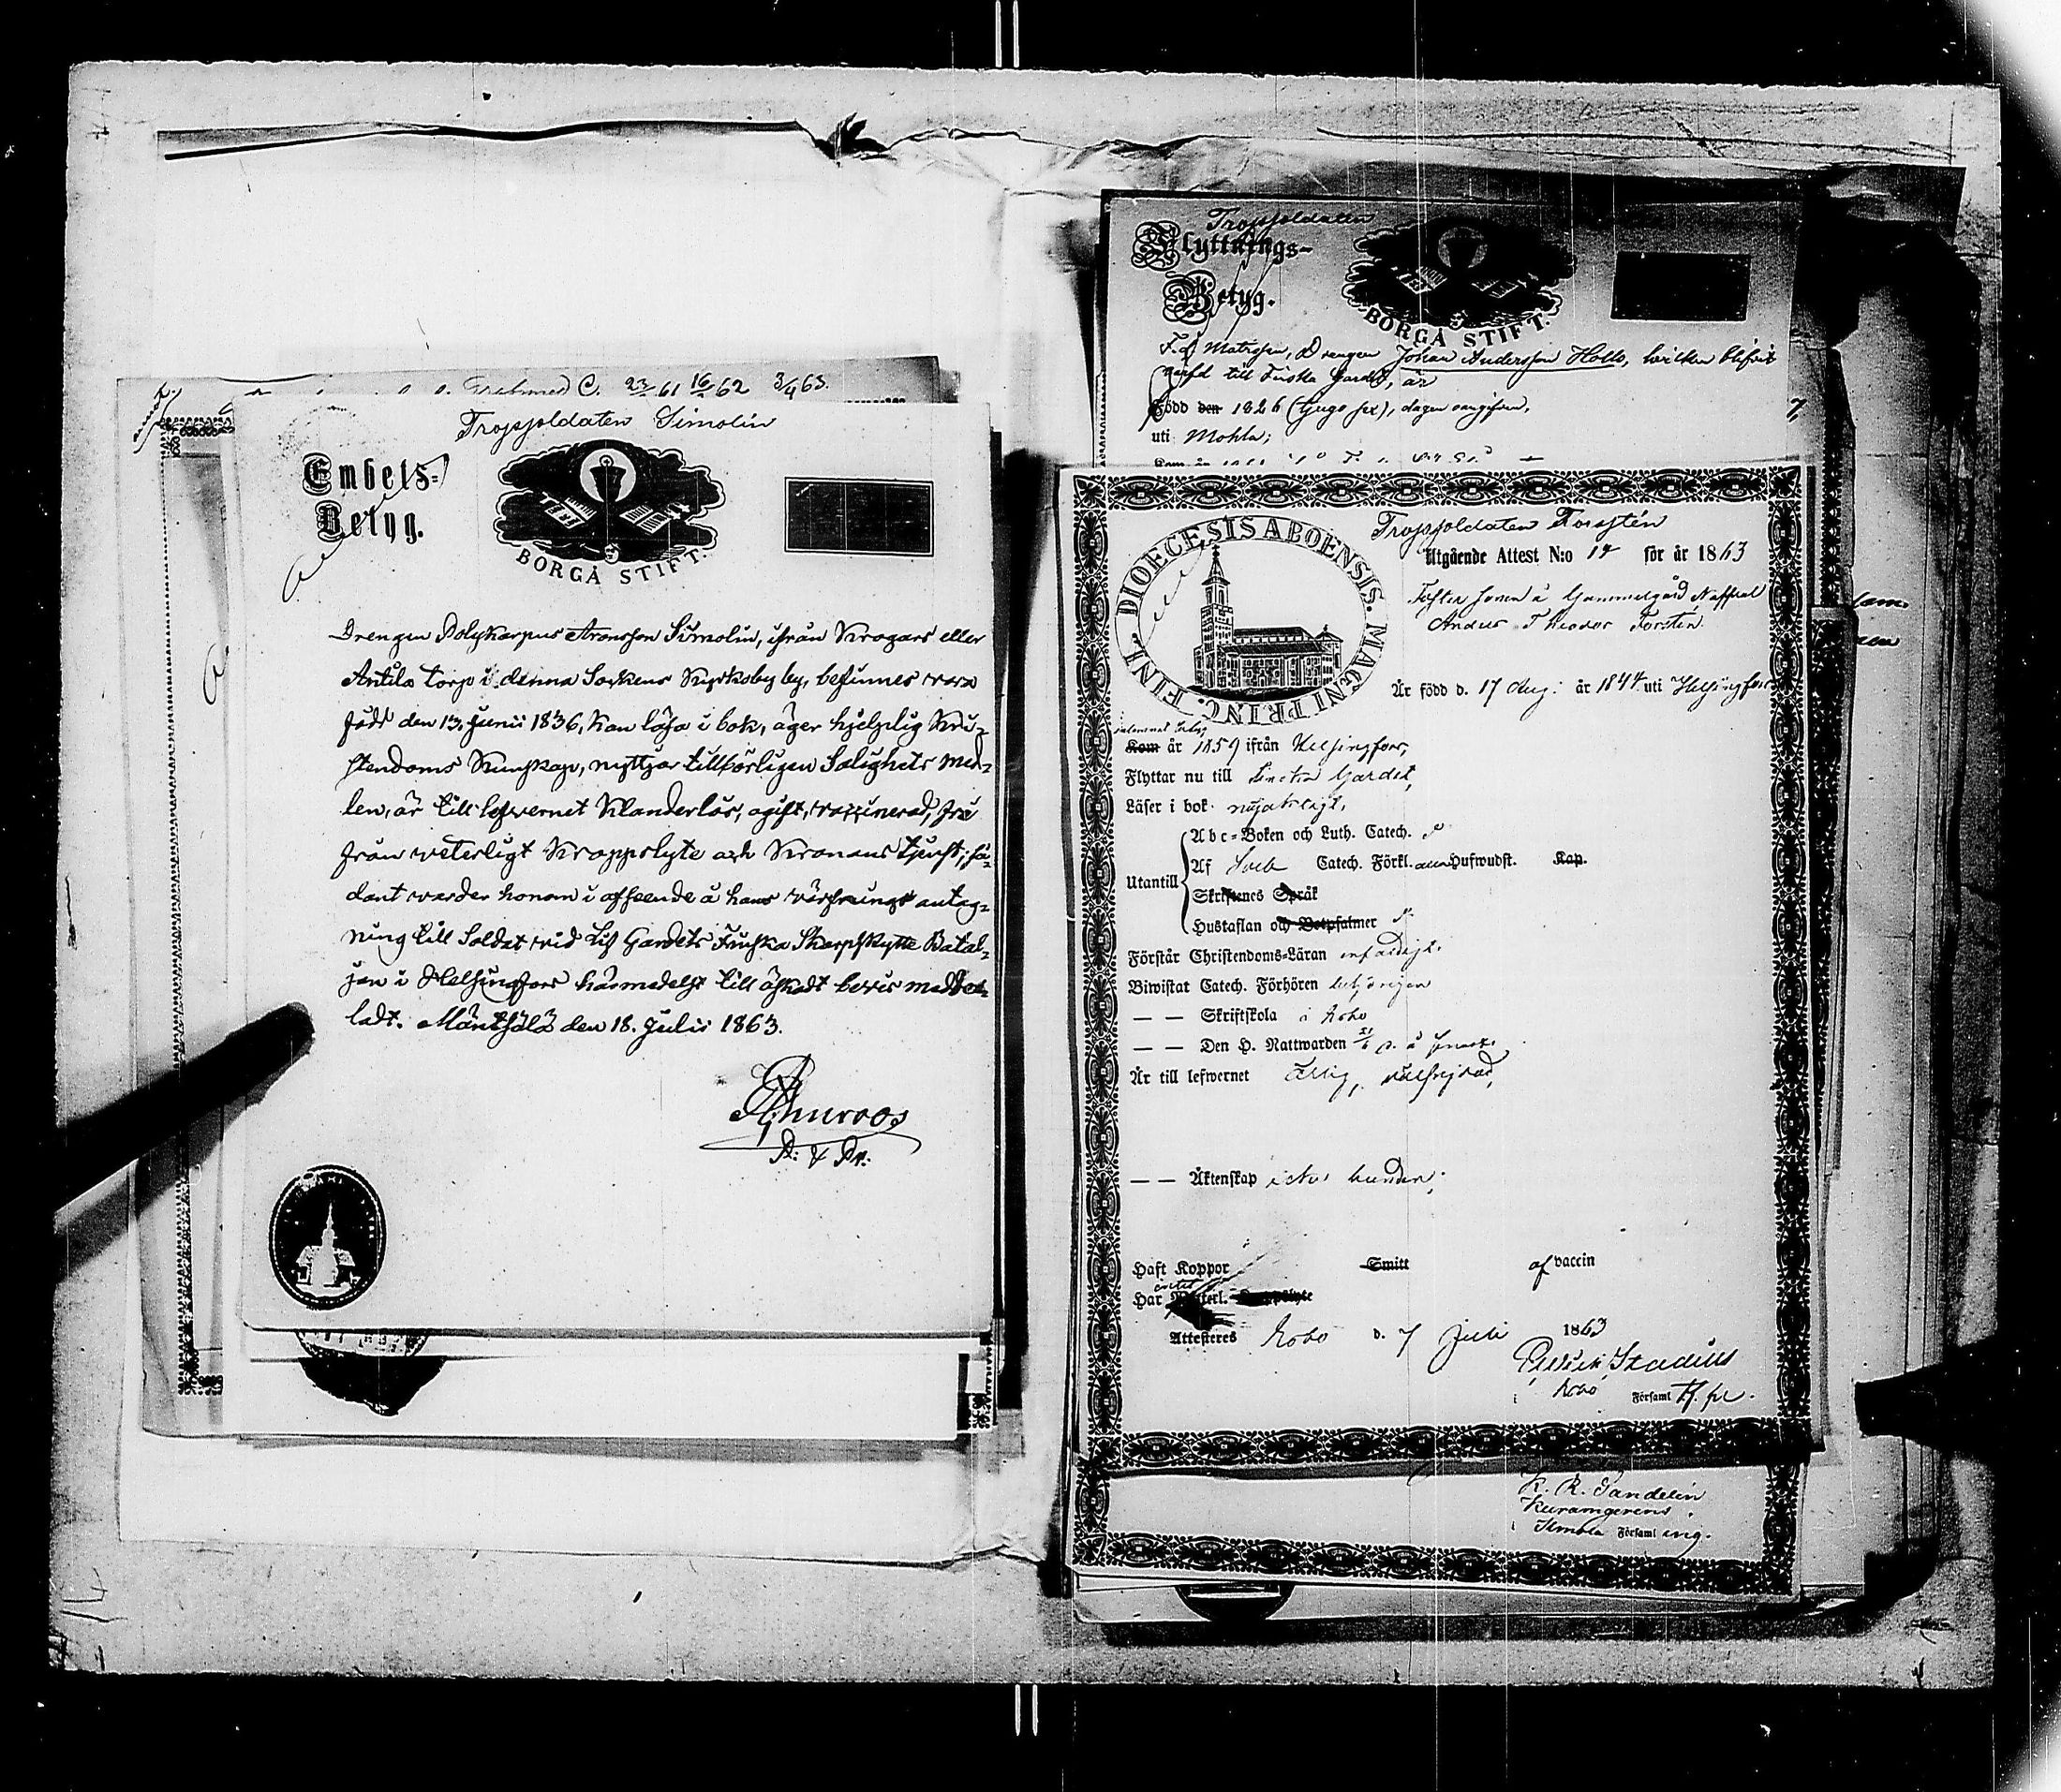 C. 23/61 16/62 3/4 63.
Troppsoldaten Simolin
Embets-
Betyg.
BORGÅ STIFT.
Drengen Polykarpus Aronsson Simolin, ifrån Krogars eller
Antila torp i denna Sockens Kyrkoby by, befinnes vara
född den 13 Junii 1836, kan läsa i bok, äger hjelplig Kri-
stendoms Kunskap, nyttjar tillbörligen Salighets med-
len, är till lefvernet Klanderlös, ogift, vaccinerad, fri
från veterligt Kroppslyte och Kronans tjenst; så-
dant varder honom i afseende å hans värfnings antag-
ning till Soldat vid Lif Gardets Finska Skarpskytte Batal-
jon i Helsingfors härmedelst till äskadt bevis medde-
ladt. Mäntsälä den 18. Julii 1863.
Troppsoldaten
Flyttnings-
Betyg.
BORGÅ STIFT.
F. d. Matrosen, Drengen Johan Andersson Hollo, hvilken blifvit
till Finska Gardet, är
Född den 1826 (tjugo sex), dagen oangifven,
uti Mohla;
Troppsoldaten Forstén
DIOECESIS ABOENSIS. MAGNI PRINC. FINL.
Utgående Attest N:o 14 för år 1863
Foster sonen å Gammelgård
Anders Theodor Forstén
Är född d. 17 Aug: år 1844 uti Helsingfors
Kom år 1859 ifrån Helsingfors,
Flyttar nu till Finska Gardet,
Läser i bok nöjaktigt,
Abc-Boken och Luth. Catech.
Utantill
Af Sveb Catech. Förkl. Hufwudst. Kap.
Skriftenes Språk
Hustaflan och Botpsalmer
Förstår Christendoms-Läran enfaldigt.
Biwistat Catech. Förhören behörigen
— — Skriftskola i Esbo
— — Den H. Nattwarden
Är till lefwernet ärlig, välfrejdad,
— — Äktenskap icke bunden;
Haft Koppor Smitt af vaccin
Har
Attesteres Esbo d. 7 Juli 1863
Fredrik Stadius
i Esbo Församl
K. R. Sandelin
Församl